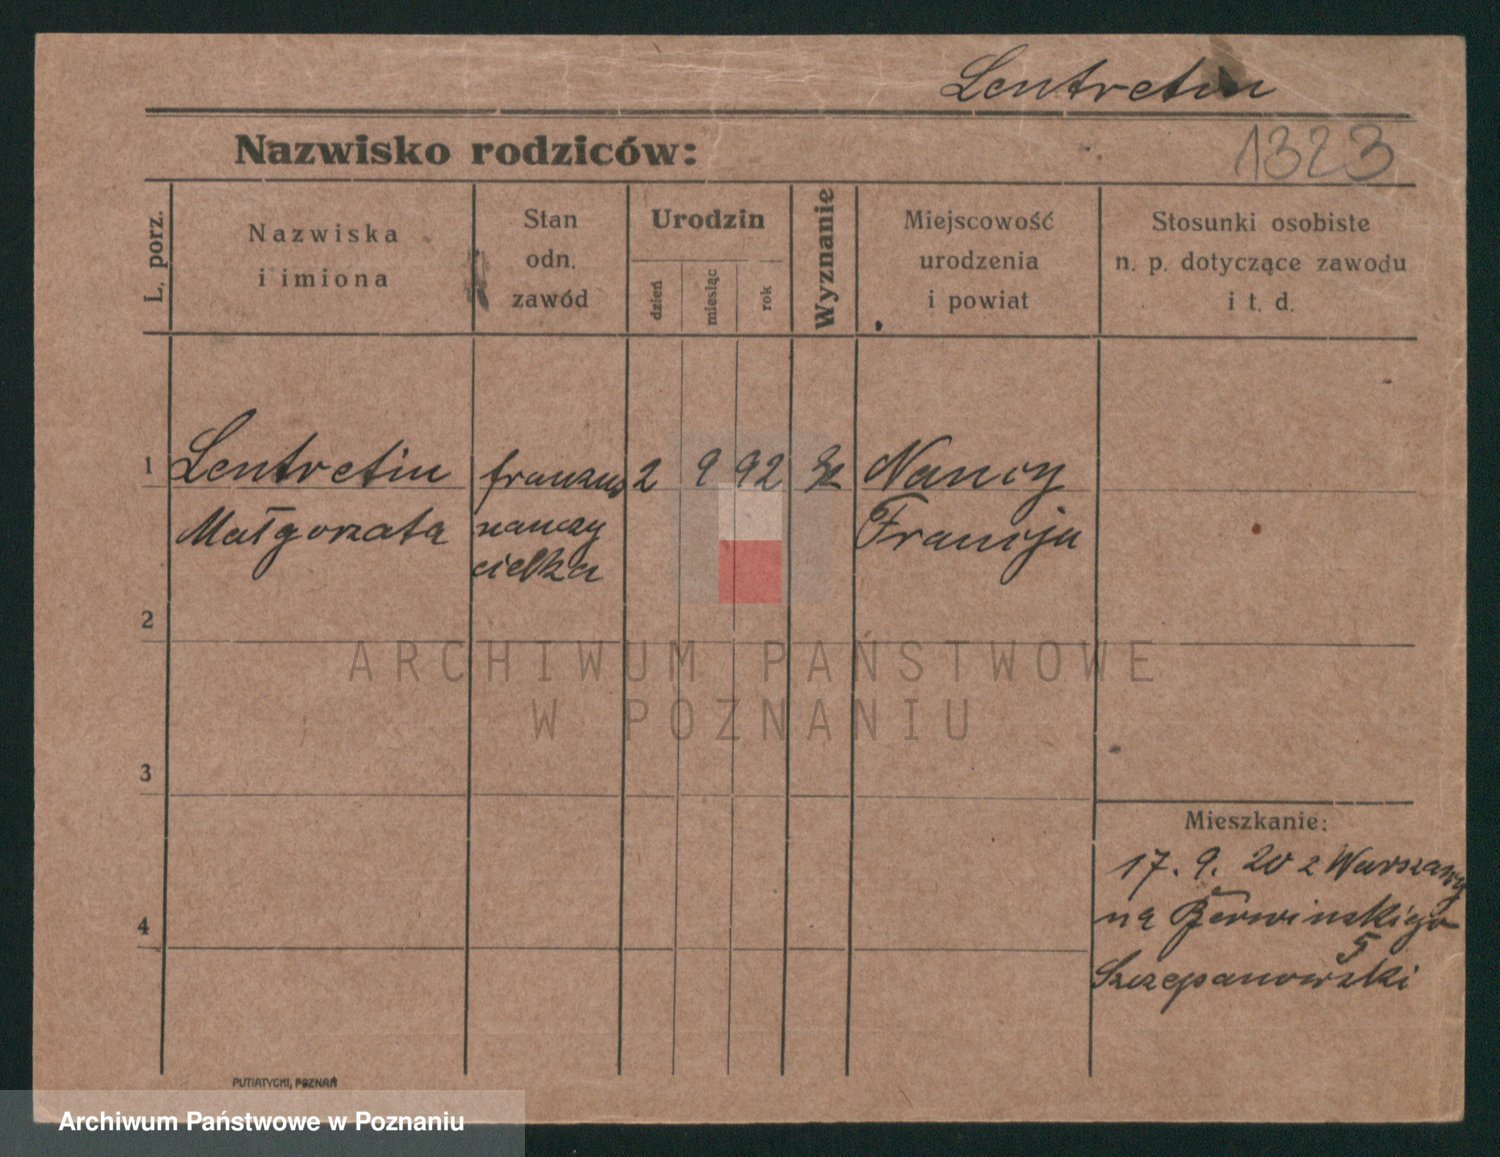 Lentretin
Nazwisko rodziców:
1323
L. porz.
Nazwiska
i imiona
Stan
odn.
zawód
Urodzin
dzień
miesiąc
rok
Wyznanie
Miejscowość
urodzenia
i powiat
Stosunki osobiste
n. p. dotyczące zawodu
i t. d.
1 Lentretin 2 9 92 Nancy
Małgorzata nauczy Francja
cielka
2
ARCHIWUM PAŃSTWOWE
W POZNANIU
3
Mieszkanie:
17. 9. 20 z Warszawy
na Berwinskiego
5
Szczepanowski
4
PUTIATYCKI, POZNAŃ
Archiwum Państwowe w Poznaniu